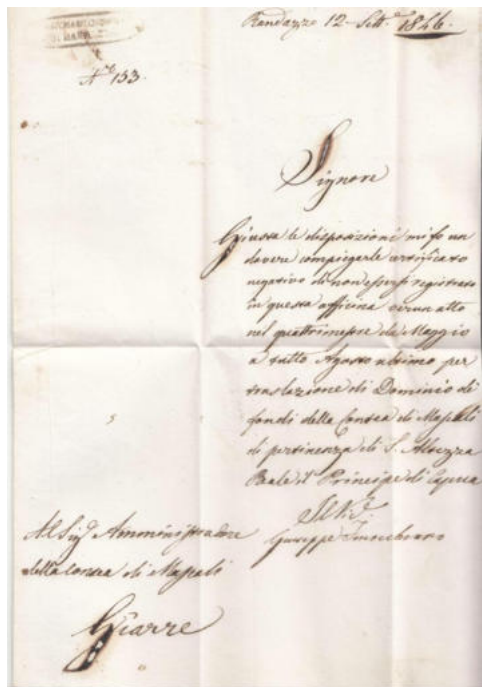 Randazzo 12 Sett.e 1846.
N.o 153.
Signore
Giusta le disposizioni mi fo un
dovere compiegarle certificato
negativo di non essersi registrato
in questa officina verun atto
nel quattrimestre da Maggio
a tutto Agosto ultimo per
traslazione di Dominio di
fondi della Contea di Mascali
di pertinenza di S. Altezza
Reale il Principe di Capua
Giuseppe
Al Sig.r Amministratore
della Contea di Mascali
Giarre